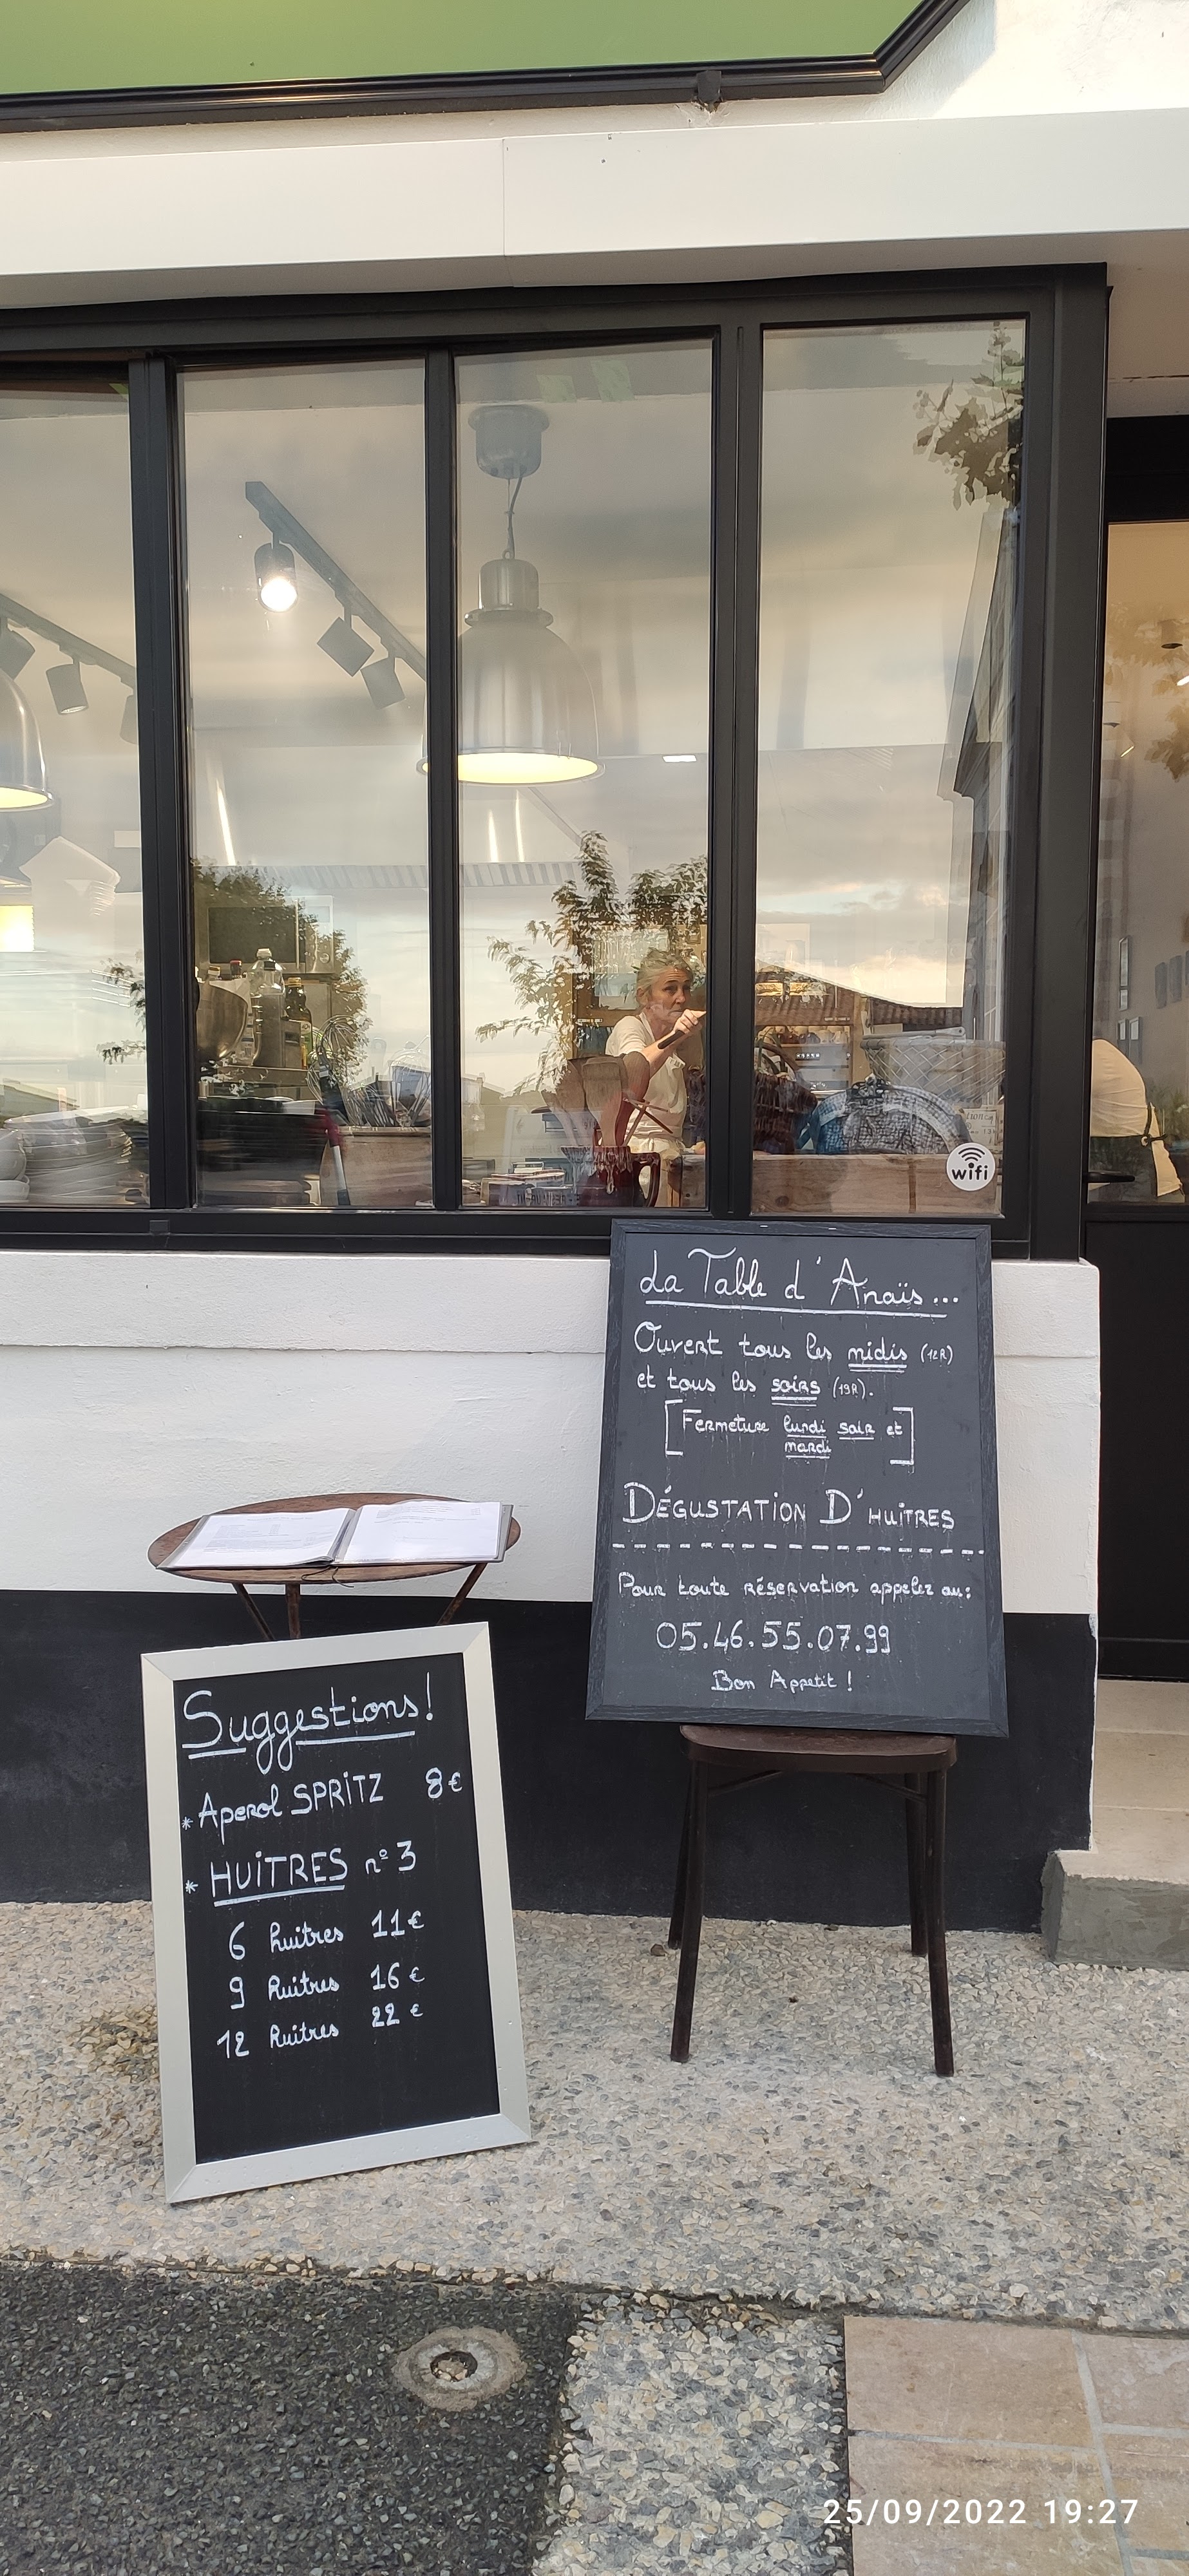 wifi
La Table d'Anaïs...
Ouvert tous les midis (12R)
et tous les soirs (19R).
[Fermeture lundi soir et
mardi]
DÉGUSTATION D'HUITRES
Pour toute réservation appelez au:
05.46.55.07.99
Bon Appetit !
Suggestions!
* Aperol SPRiTZ 8€
* HUiTRES n° 3
6 huitres 11€
9 huitres 16€
12 huitres 22€
25/09/2022 19:27